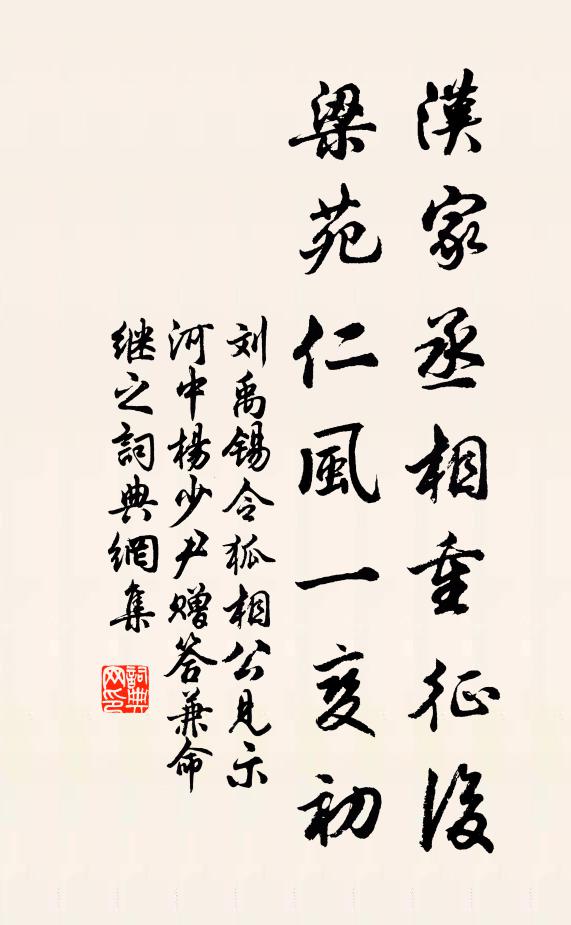 漢家丞相重征後
梁苑仁風一变初
刘禹锡令狐相公見示
河中楊少尹赠答兼命
继之詞典網集
詞典网印